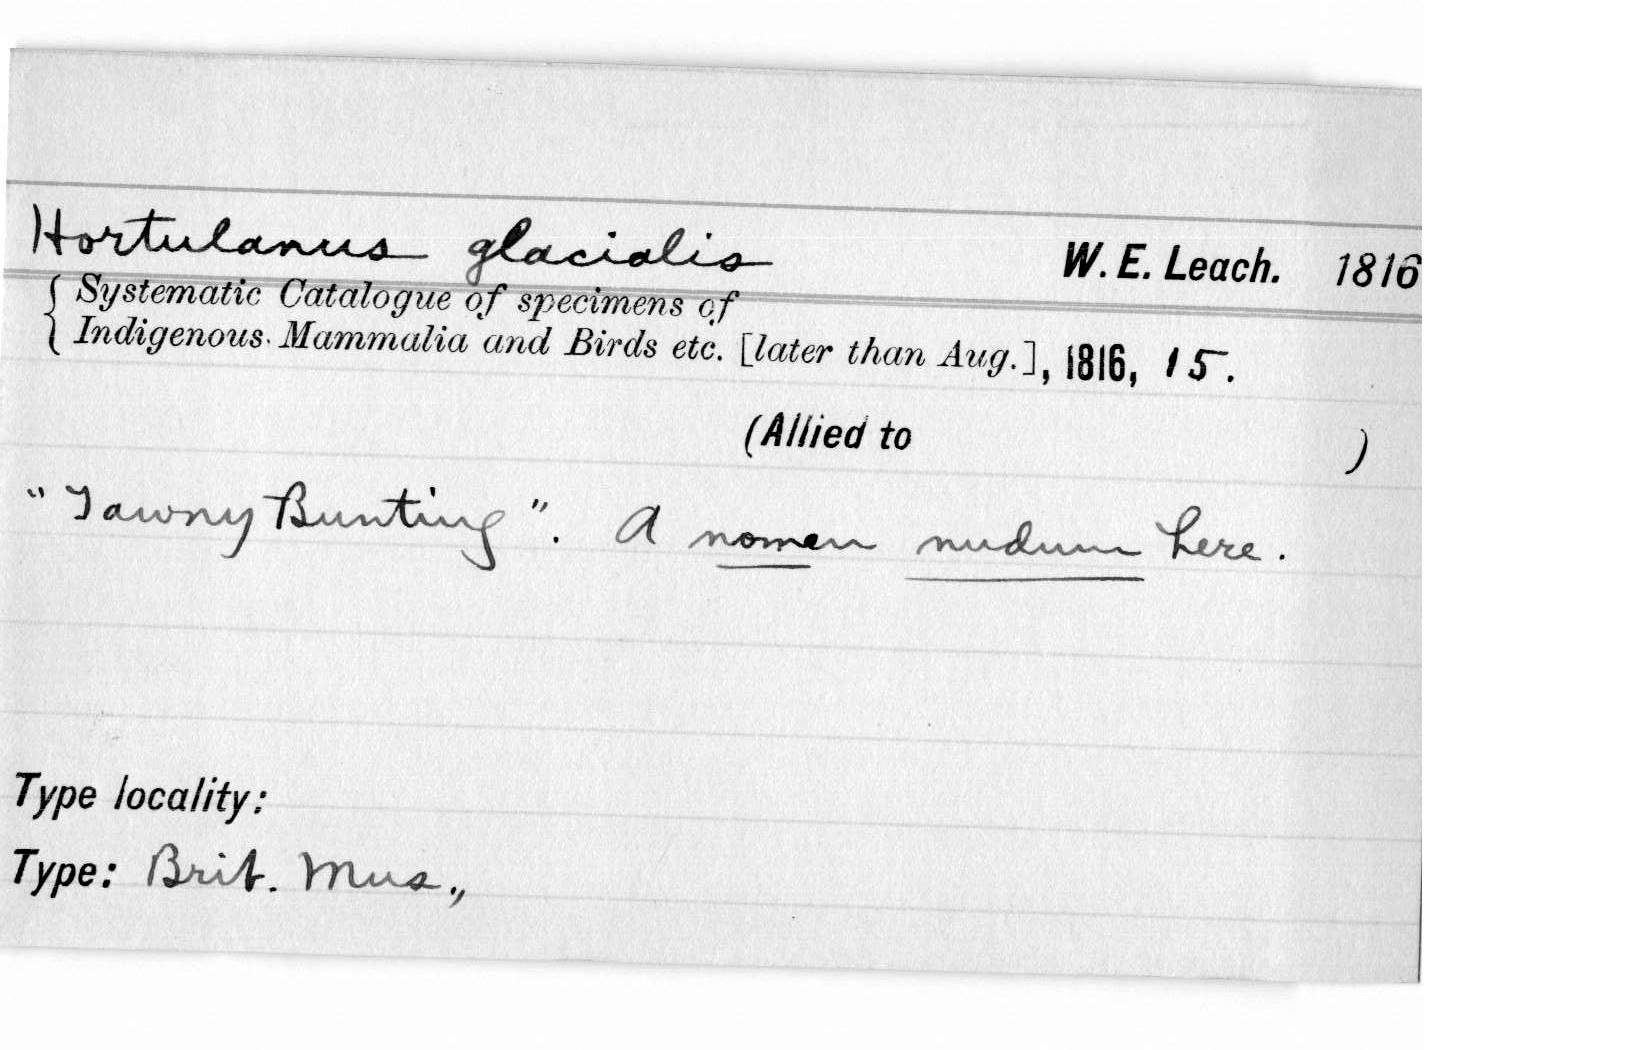 Hortulanus glacialis W. E. Leach. 1816
{ Systematic Catalogue of specimens of
Indigenous. Mammalia and Birds etc. [later than Aug.], 1816, 15.
(Allied to )
"Tawny Bunting". A nomen nudum here.
Type locality:
Type: Brit. Mus.,